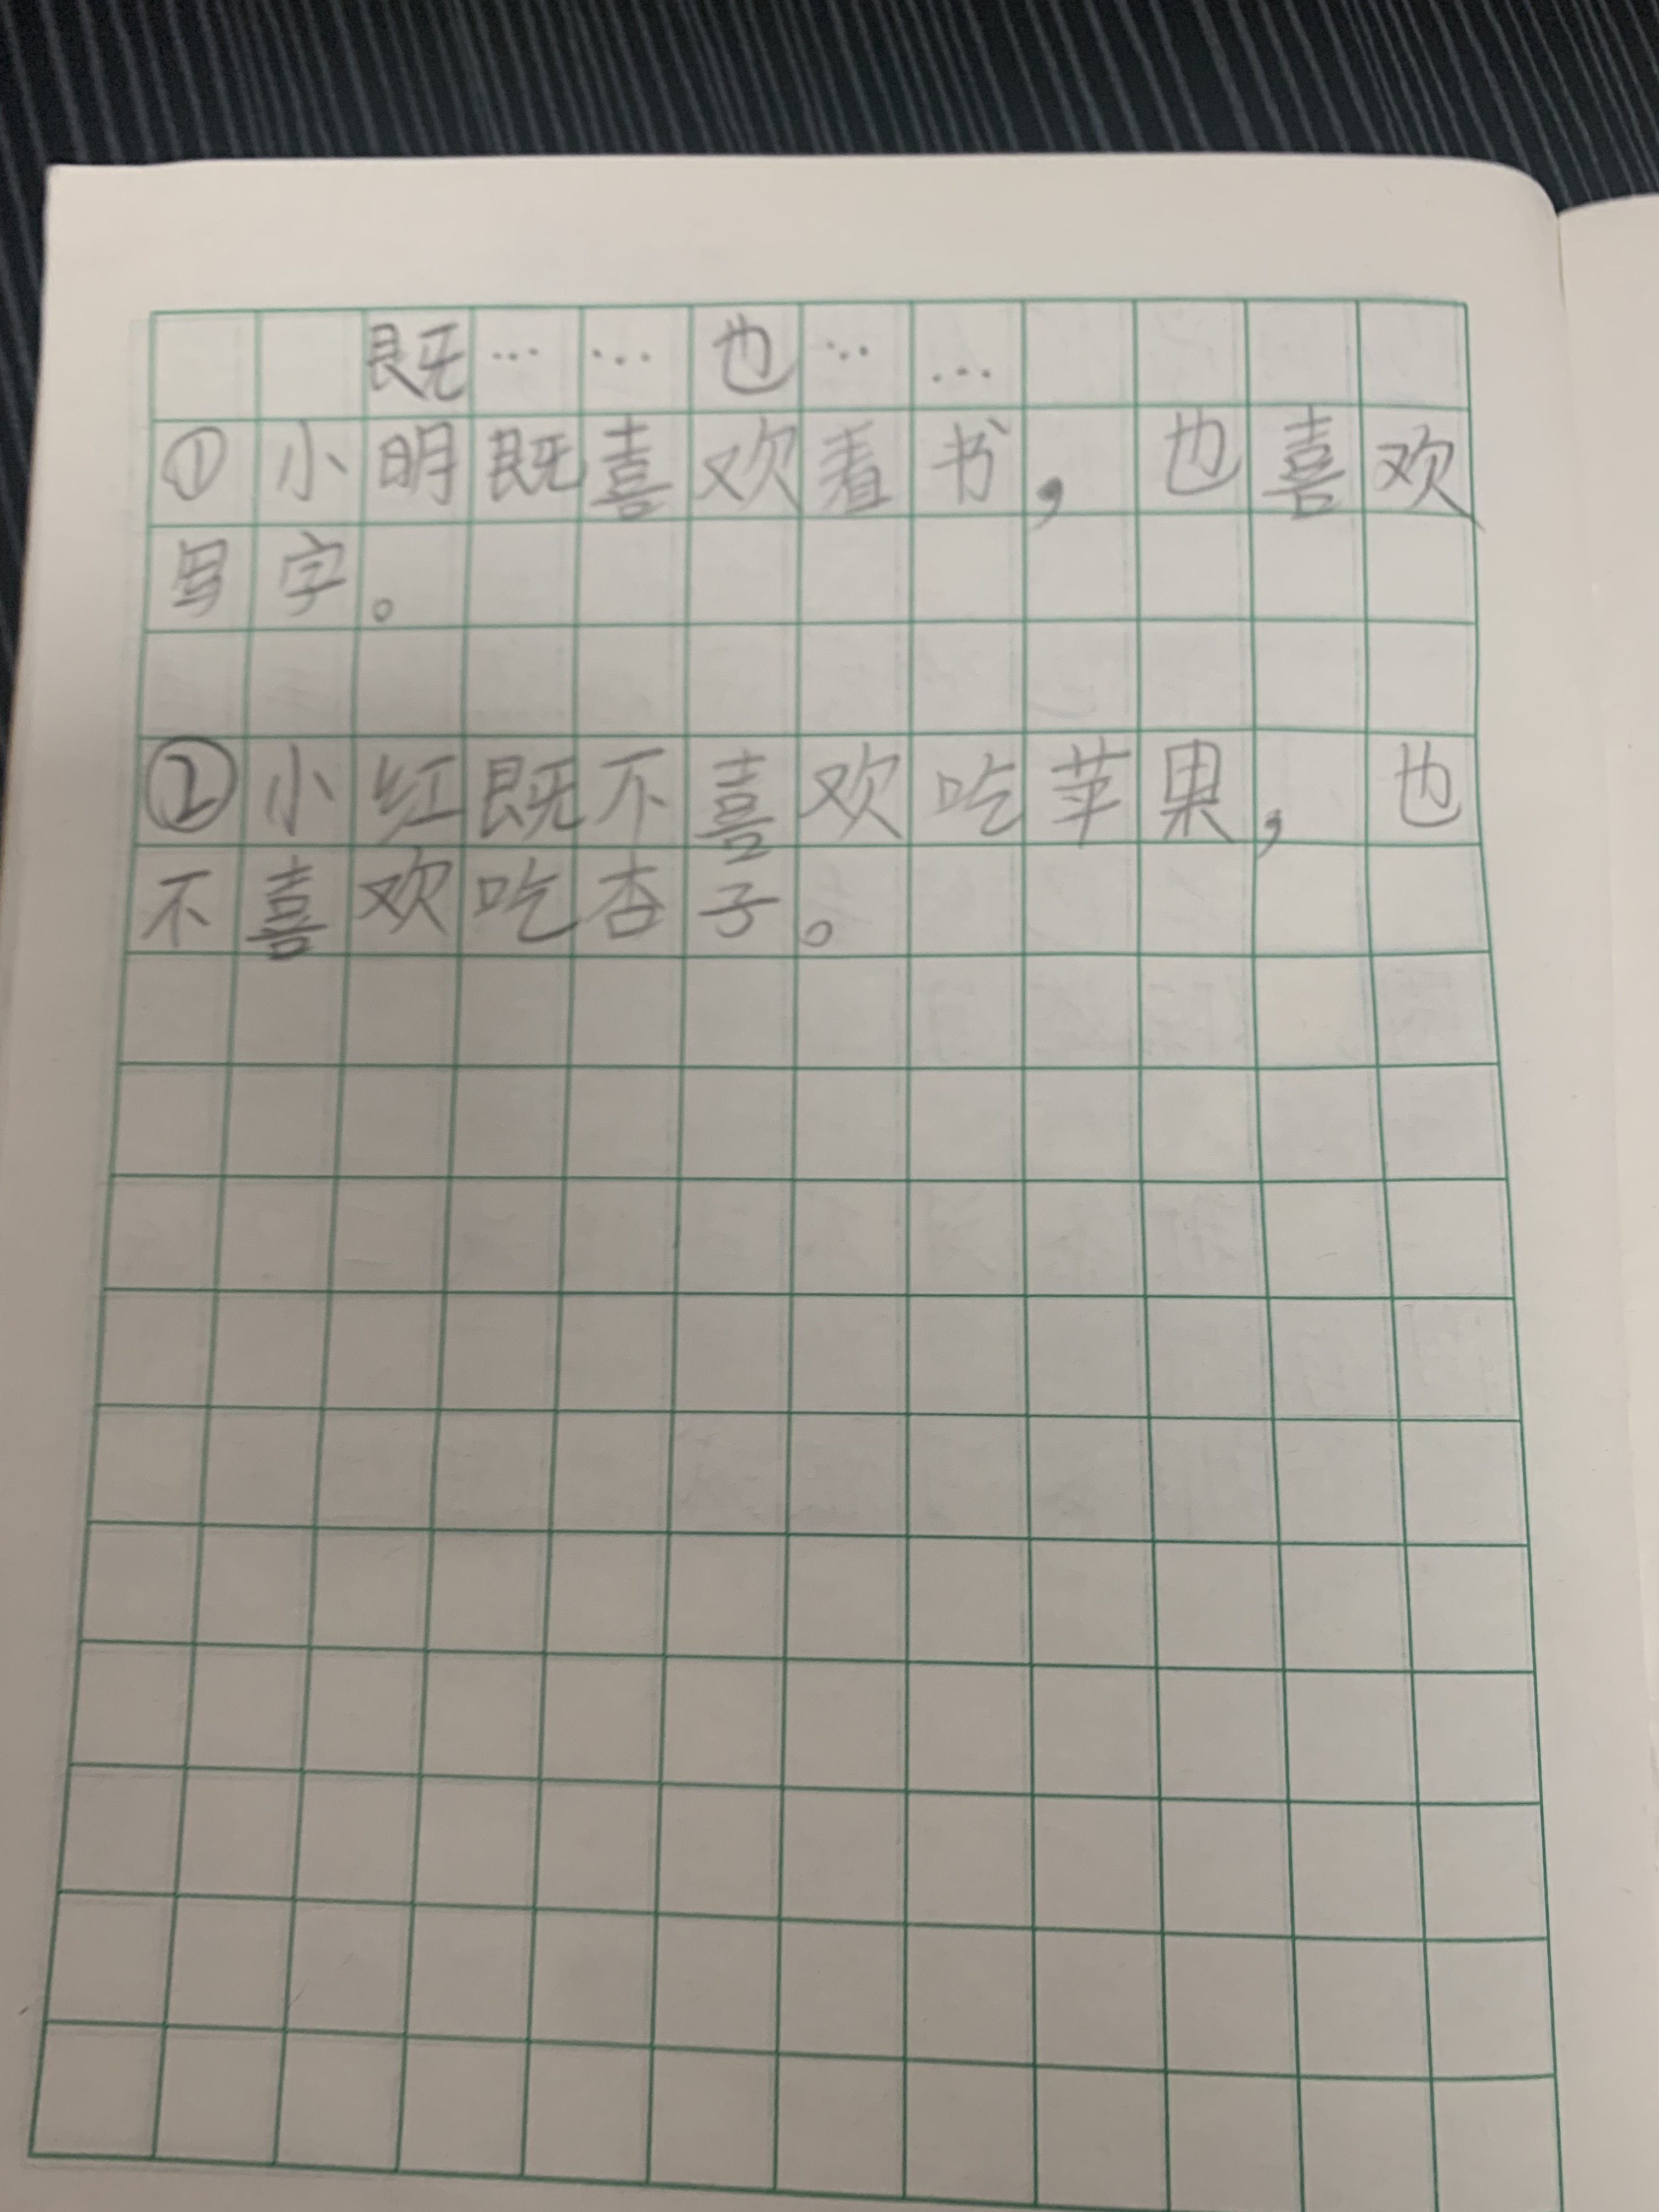 既……也……
①小明既喜欢看书，也喜欢
写字。
②小红既不喜欢吃苹果，也
不喜欢吃杏子。